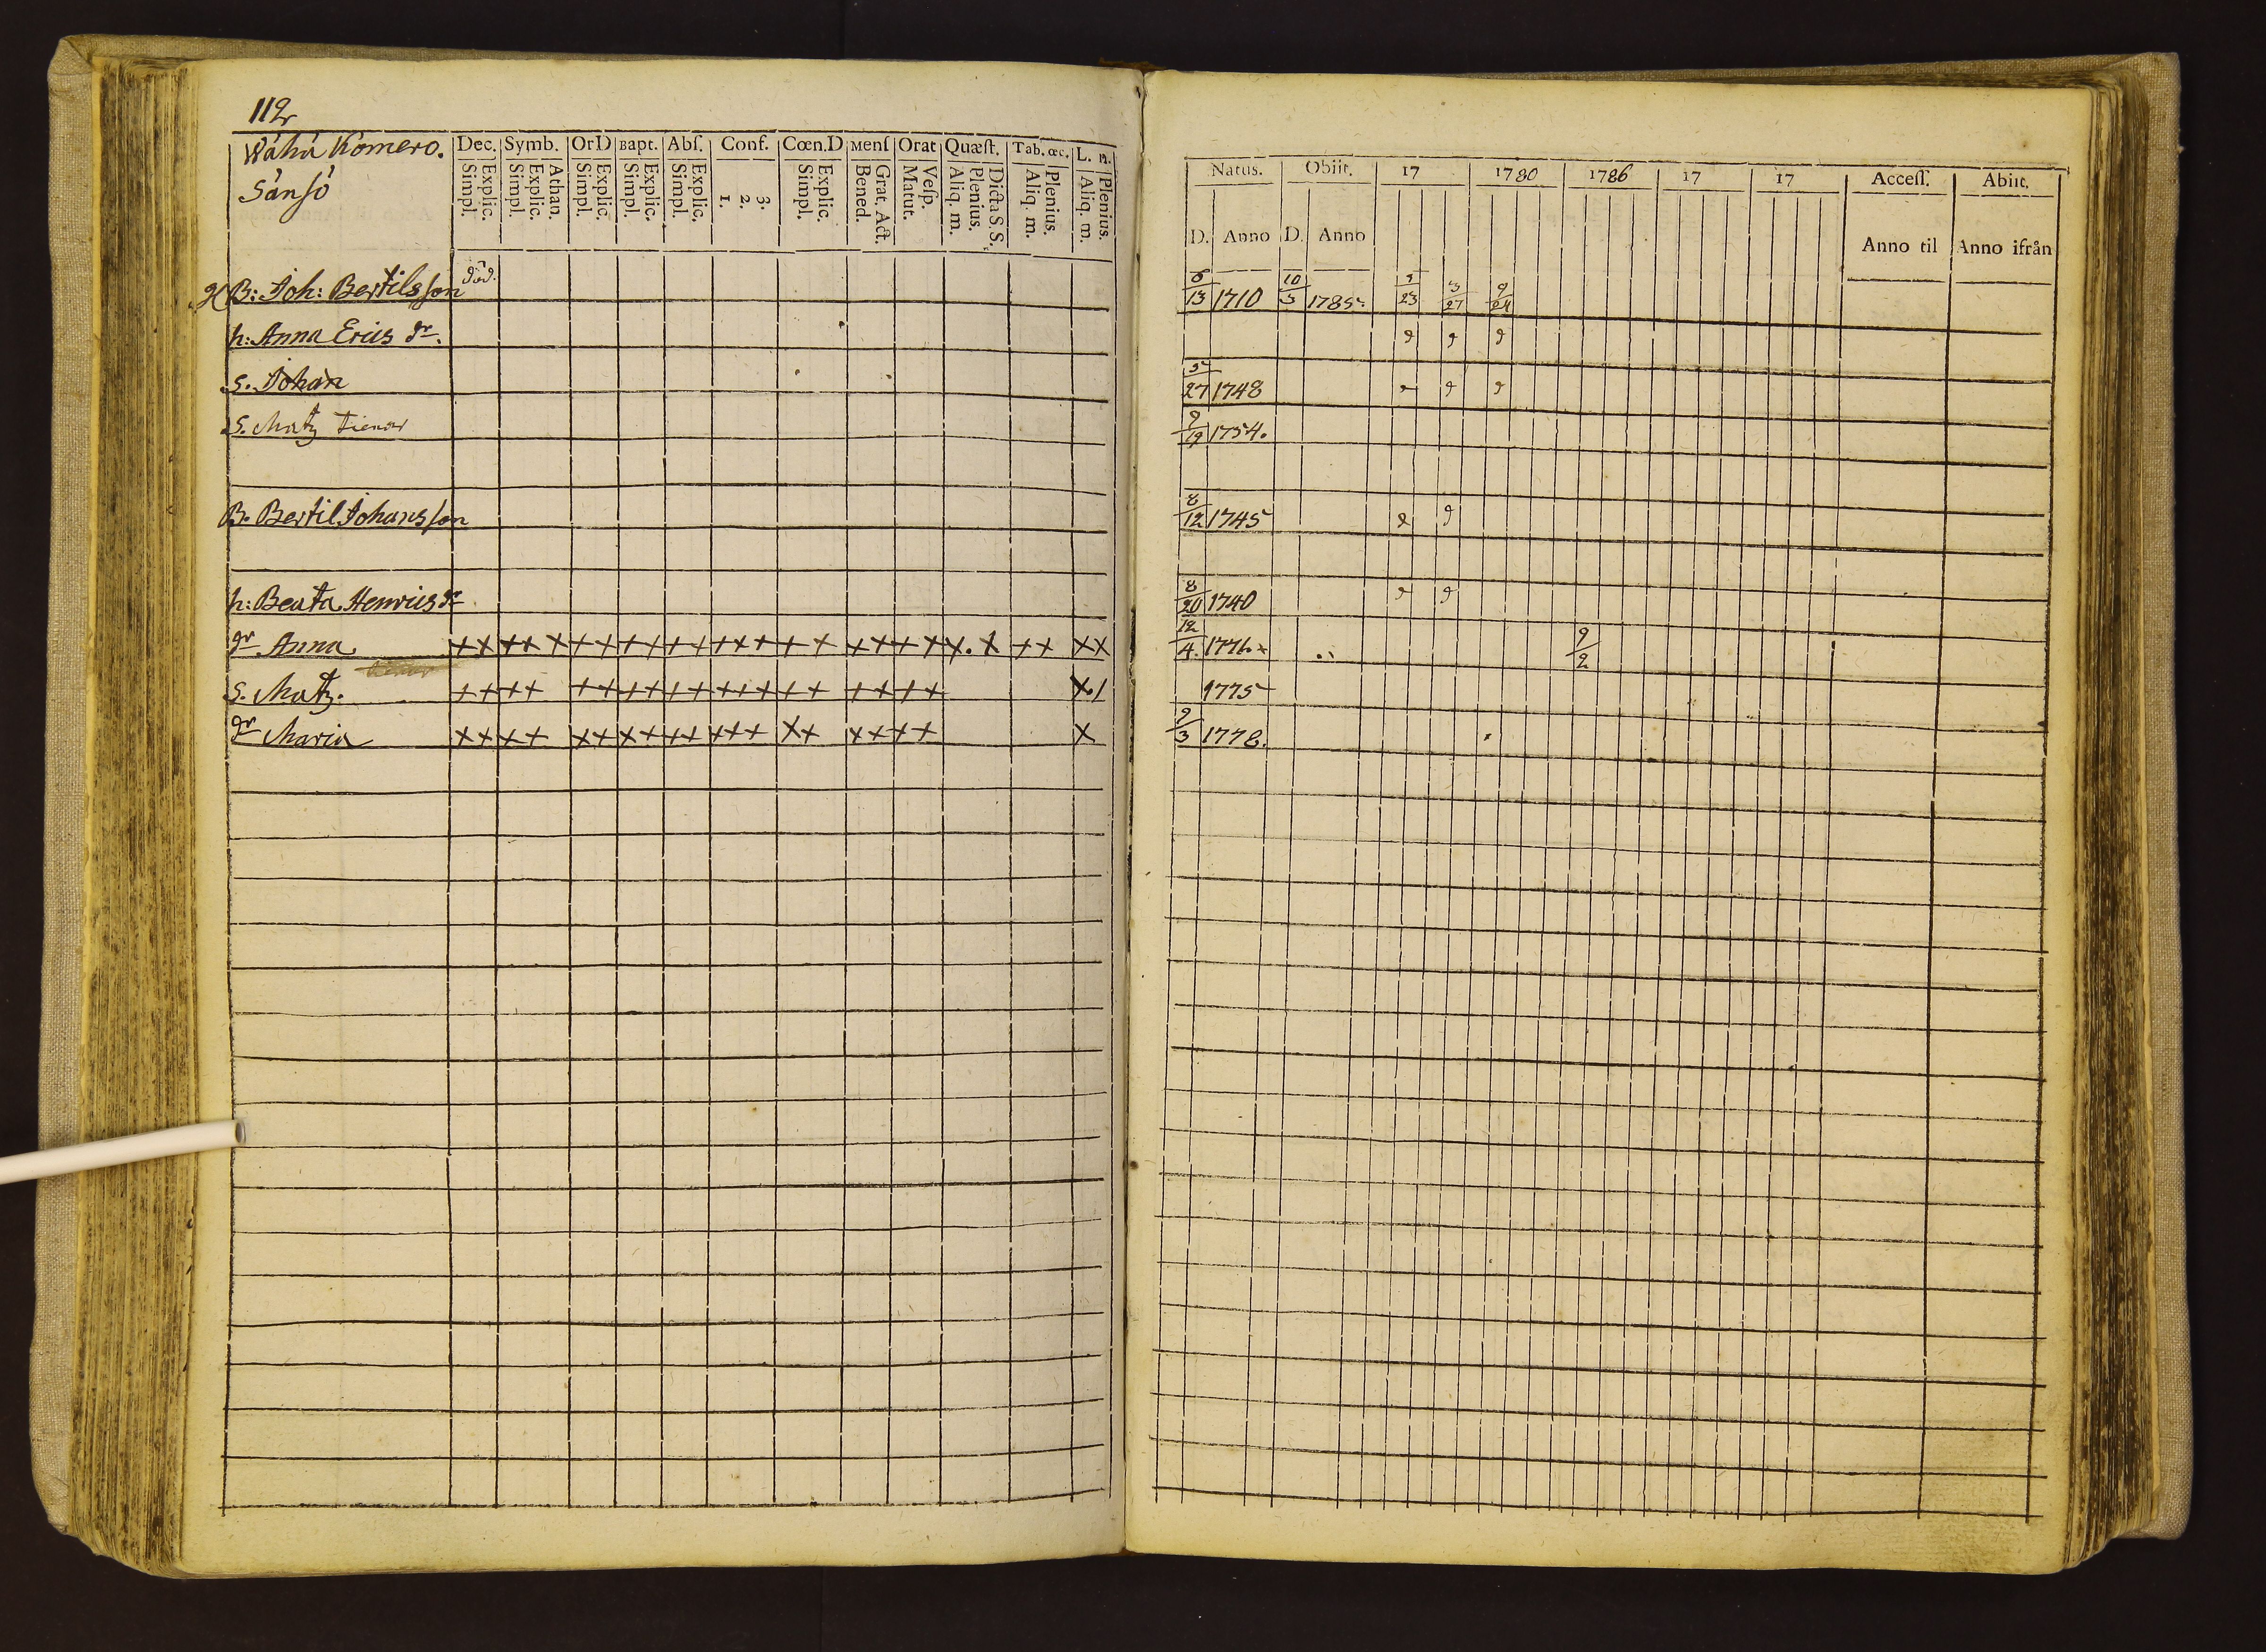 112
Wähä Kömero.
Sänsö
Dec. Symb. OrD Bapt. Abſ. Conf. Cœn.D Menſ Orat Quæſt. Tab. œc. L. n.
Explic. Simpl. Athan. Explic. Simpl. Explic. Simpl. Explic. Simpl. Explic. Simpl. 3. 2. 1. Explic. Simpl. Grat. Act. Bened. Veſp. Matut. Dicta S.S. Plenius. Aliq. m. Plenius. Aliq. m. Plenius. Aliq. m.
B: Joh: Bertilsson död.
h: Anna Erics dr.
S. Johan
S. Matz Tienar
B. Bertil Johansson
h: Beata Henrics dr
dr Anna ++ ++ + ++ ++ ++ +++ ++ ++ ++ x. x ++ xx
S. Matz. ++ ++ ++ ++ ++ +++ ++ ++ ++ x/
dr Maria ++ ++ ++ ++ ++ +++ ++ ++ ++ x
Natus. Obiit. 17 1780 1786 17 17 Acceſſ. Abiit.
D. Anno D. Anno Anno til Anno ifrån
6/13 1710 10/3 1785. 3/27 9/24
5/27 1748
9/19 1754.
8/12 1745
8/20 1740
12/4. 1776 9/2
1775
9/3 1778.